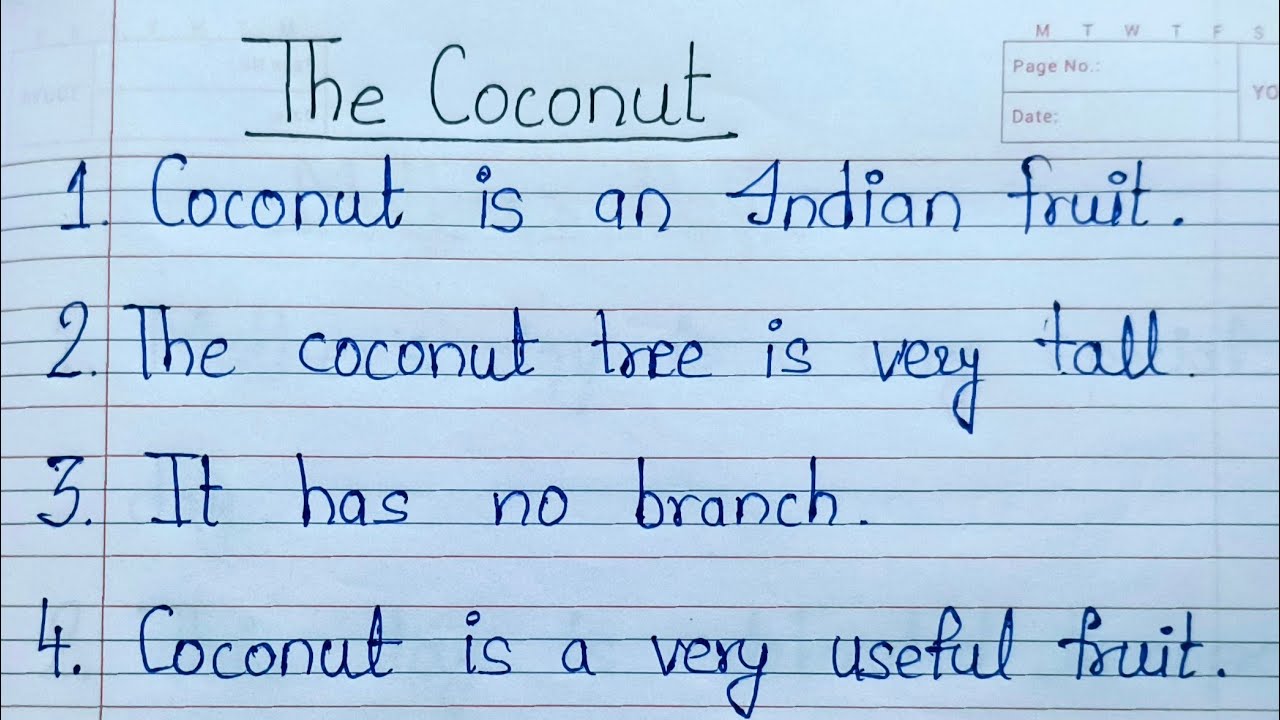 M T W T F S
The Coconut
Page No.:
YO
Date:
1. Coconut is an Indian fruit.
2. The coconut tree is very tall.
3. It has no branch.
4. Coconut is a very useful fruit.